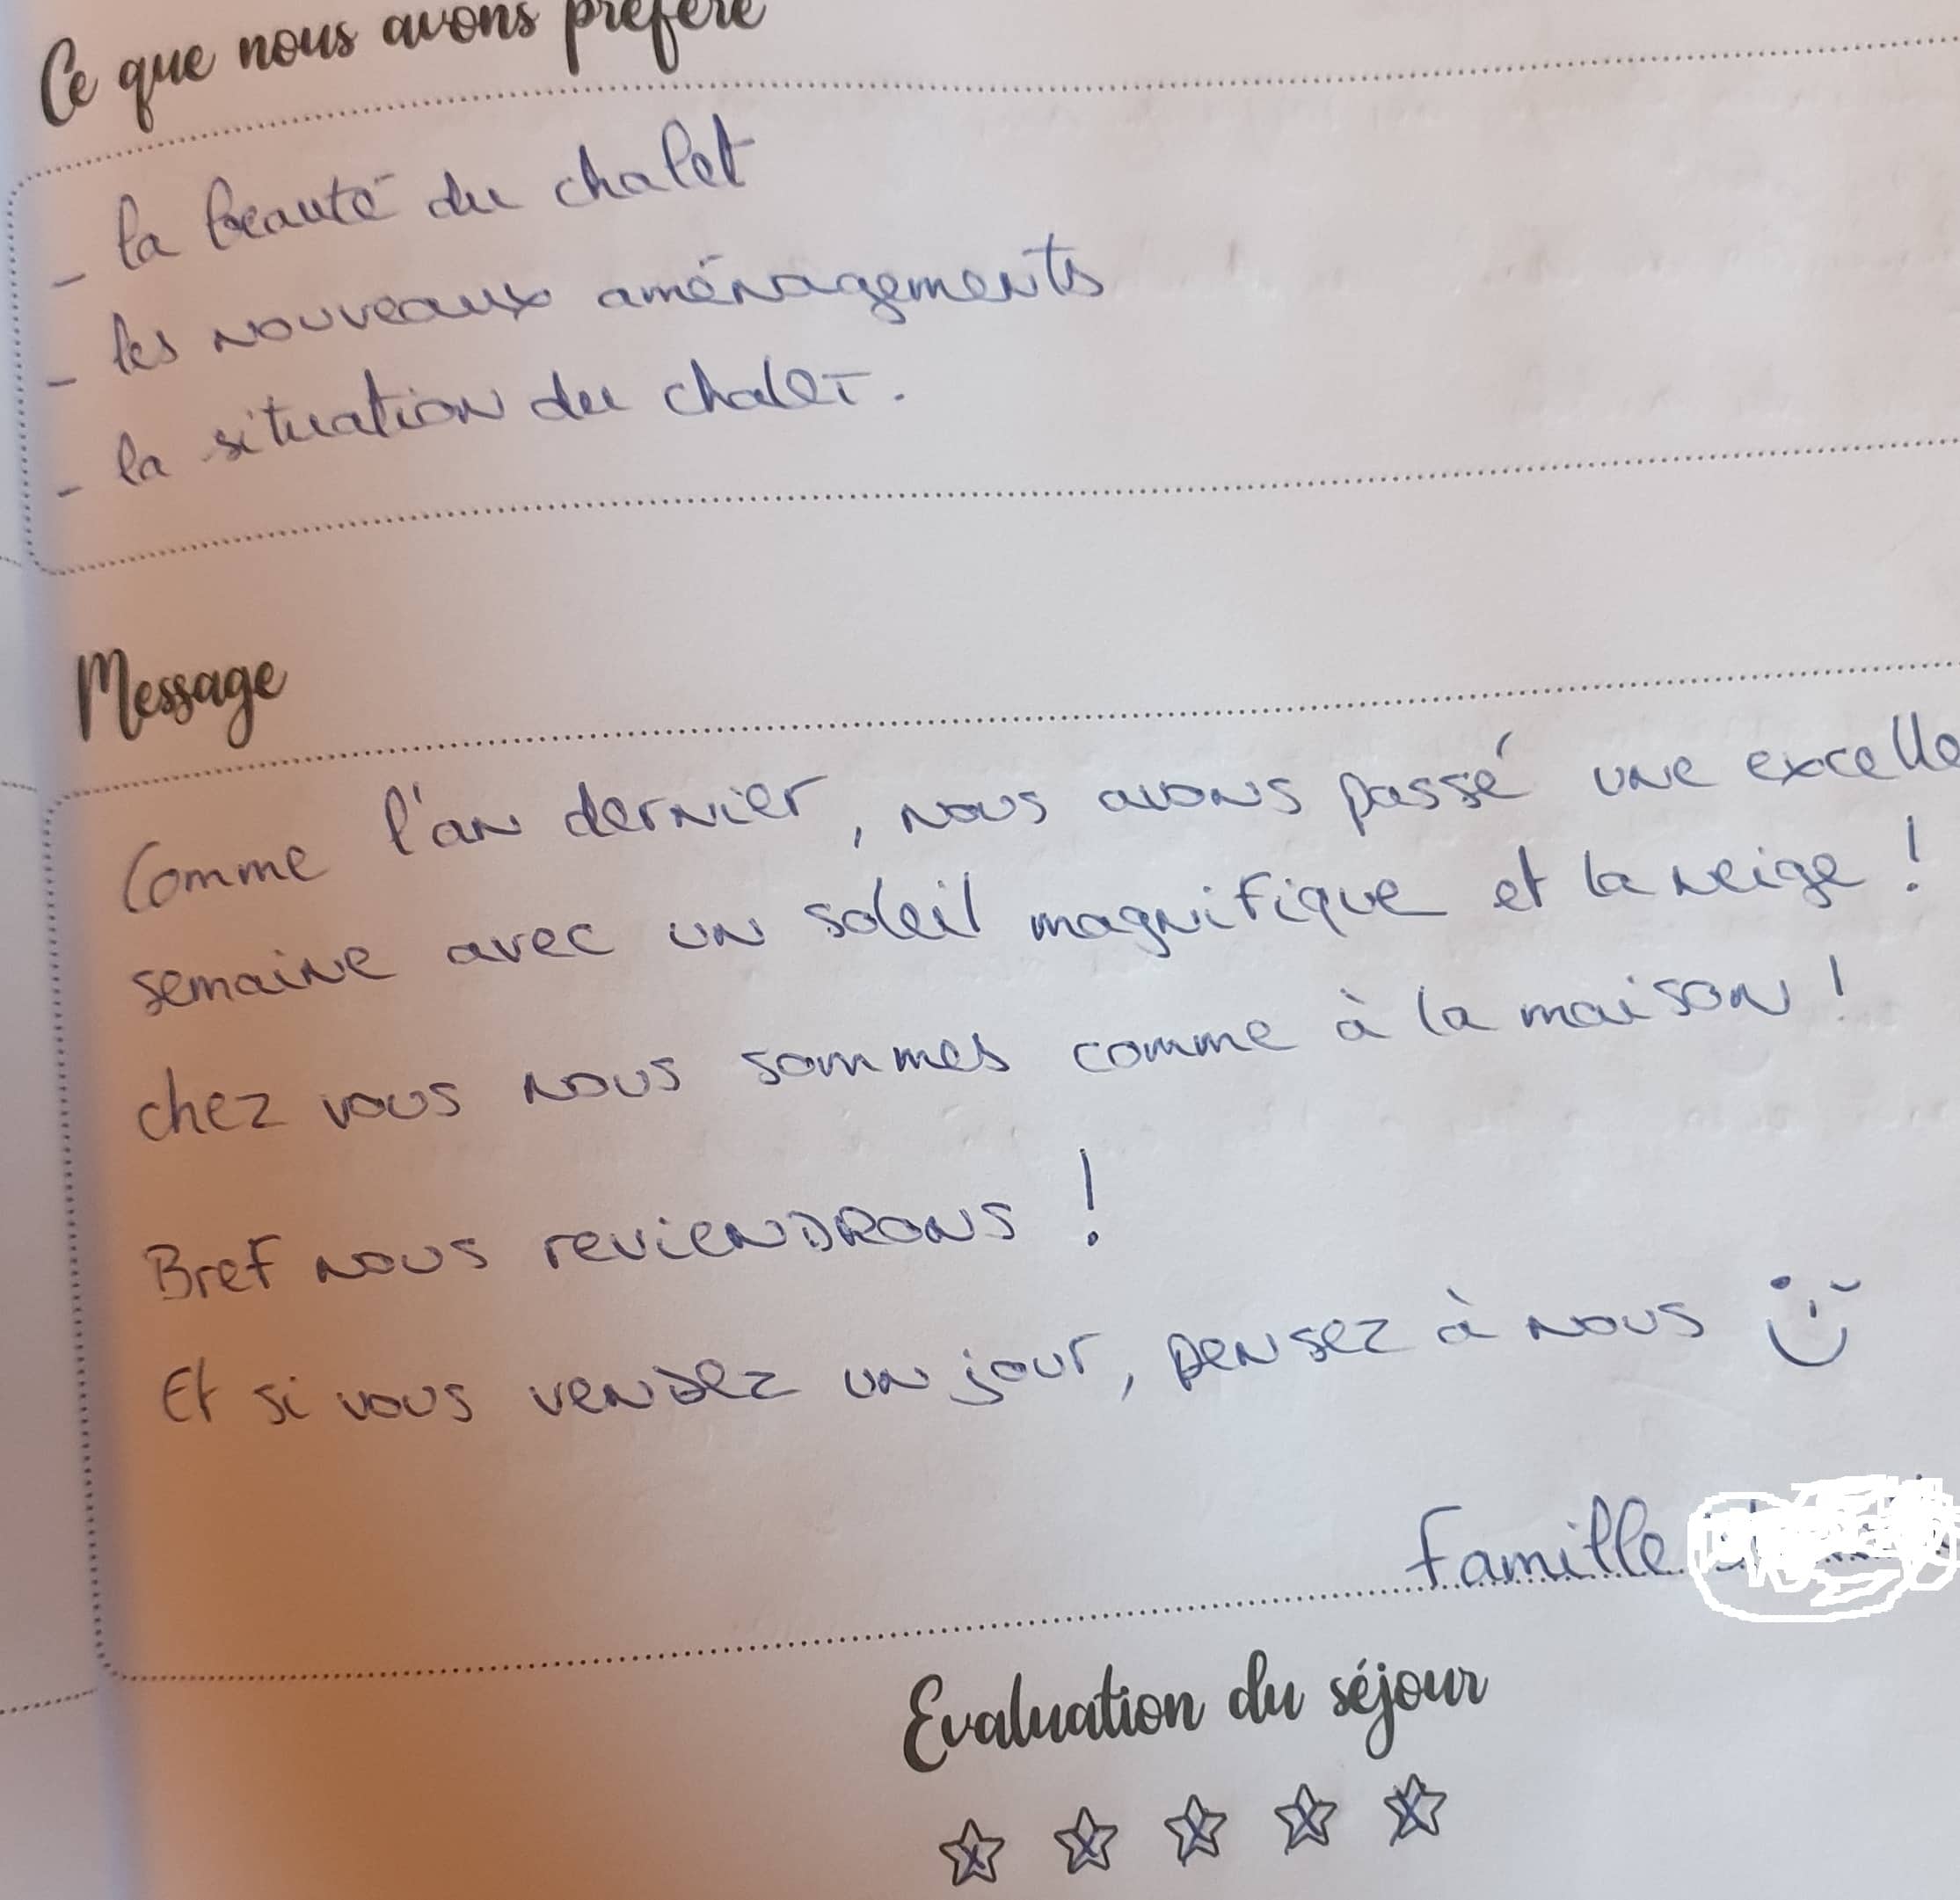 Ce que nous avons préféré
- la beauté du chalet
- les nouveaux aménagements
- la situation du chalet.
Message
Comme l'an dernier, nous avons passé une excelle
semaine avec un soleil magnifique et la neige !
chez vous nous sommes comme à la maison !
Bref nous revienDRONS !
Et si vous vendez un jour, pensez à nous
Famille
Evaluation du séjour